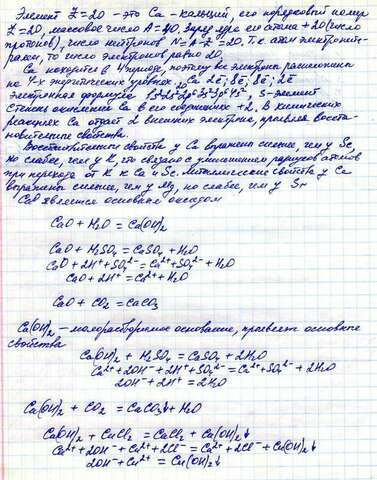 Элемент Z=20 - это Ca - кальций, его порядковый номер
Z=20, массовое число A=40. Заряд ядра его атома +20 (число
протонов), число нейтронов N=A-Z=20. Т.к. атом электронейт-
рален, то число электронов равно 20.
Ca находится в 4 периоде, поэтому все электроны расположены
на 4-х энергетических уровнях, Ca 2ē; 8ē; 8ē; 2ē
Электронная формула 1s²2s²2p⁶3s²3p⁶4s², s-элемент
Степень окисления Ca в его соединениях +2. В химических
реакциях Ca отдает 2 внешних электрона, проявляя восста-
новительные свойства.
Восстановительные свойства у Ca выражены сильнее, чем у Sc,
но слабее, чем у K, что связано с уменьшением радиусов атомов
при переходе от K к Ca и Sc. Металлические свойства у Ca
выражены сильнее, чем у Mg, но слабее, чем у Sr
CaO является основным оксидом
CaO + H₂O = Ca(OH)₂
CaO + H₂SO₄ = CaSO₄ + H₂O
CaO + 2H⁺ + SO₄²⁻ = Ca²⁺ + SO₄²⁻ + H₂O
CaO + 2H⁺ = Ca²⁺ + H₂O
CaO + CO₂ = CaCO₃
Ca(OH)₂ - малорастворимое основание, проявляет основные
свойства
Ca(OH)₂ + H₂SO₄ = CaSO₄ + 2H₂O
Ca²⁺ + 2OH⁻ + 2H⁺ + SO₄²⁻ = Ca²⁺ + SO₄²⁻ + 2H₂O
2OH⁻ + 2H⁺ = 2H₂O
Ca(OH)₂ + CO₂ = CaCO₃↓ + H₂O
Ca(OH)₂ + CuCl₂ = CaCl₂ + Cu(OH)₂↓
Ca²⁺ + 2OH⁻ + Cu²⁺ + 2Cl⁻ = Ca²⁺ + 2Cl⁻ + Cu(OH)₂↓
2OH⁻ + Cu²⁺ = Cu(OH)₂↓